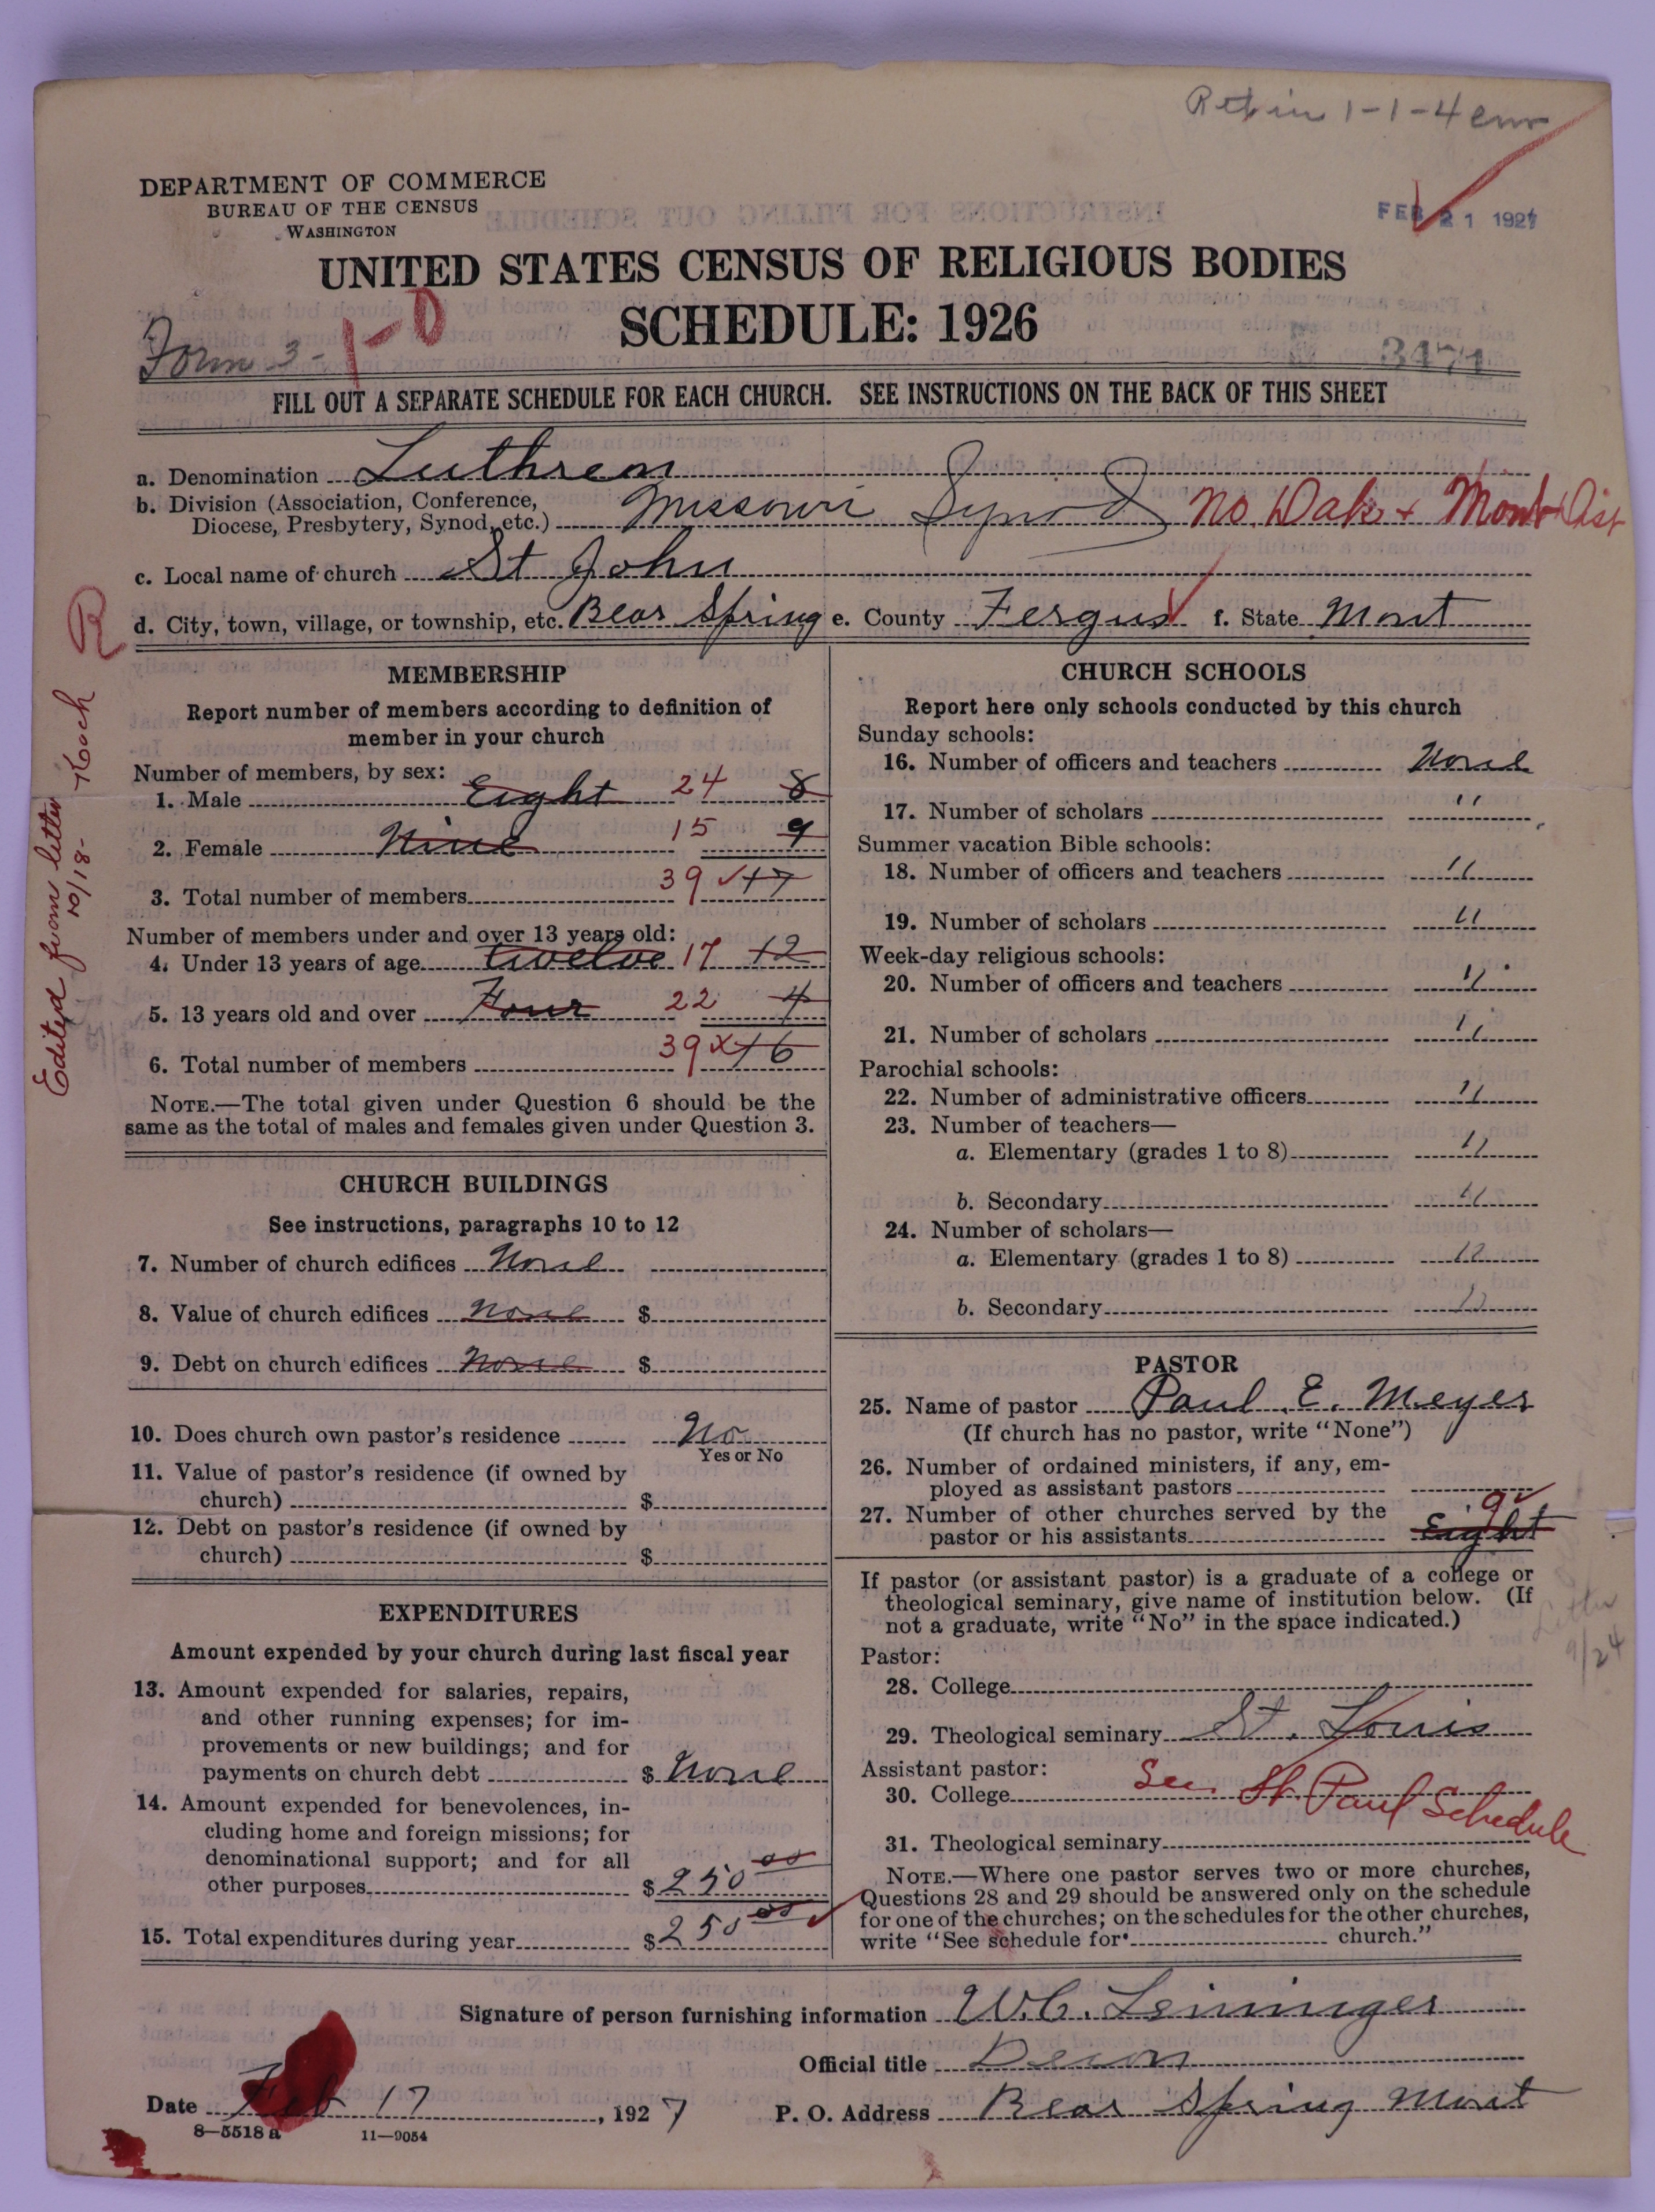 DEPARTMENT OF COMMERCE
BUREAU OF THE CENSUS
WASHINGTON
FEB 21 1927
UNITED STATES CENSUS OF RELIGIOUS BODIES
SCHEDULE: 1926
Form 3- 1-0
3471
FILL OUT A SEPARATE SCHEDULE FOR EACH CHURCH. SEE INSTRUCTIONS ON THE BACK OF THIS SHEET
a. Denomination Luthren
b. Division (Association, Conference, Diocese, Presbytery, Synod, etc.) Missouri Synod No. Dak + Mont Dist
c. Local name of church St John
d. City, town, village, or township, etc. Bear Spring e. County Fergus f. State Mont
R
Edited from letter 10/18- Koch
MEMBERSHIP
Report number of members according to definition of
member in your church
Number of members, by sex:
1. Male Eight 24 8
2. Female Nine 15 9
3. Total number of members 39 17
Number of members under and over 13 years old:
4. Under 13 years of age twelve 17 12
5. 13 years old and over Four 22 4
6. Total number of members 39 x 16
NOTE.—The total given under Question 6 should be the
same as the total of males and females given under Question 3.
CHURCH BUILDINGS
See instructions, paragraphs 10 to 12
7. Number of church edifices None
8. Value of church edifices None $
9. Debt on church edifices None $
10. Does church own pastor's residence No
Yes or No
11. Value of pastor's residence (if owned by
church) $
12. Debt on pastor's residence (if owned by
church) $
EXPENDITURES
Amount expended by your church during last fiscal year
13. Amount expended for salaries, repairs,
and other running expenses; for im-
provements or new buildings; and for
payments on church debt $ None
14. Amount expended for benevolences, in-
cluding home and foreign missions; for
denominational support; and for all
other purposes $ 250 00
15. Total expenditures during year $ 250 00
CHURCH SCHOOLS
Report here only schools conducted by this church
Sunday schools:
16. Number of officers and teachers None
17. Number of scholars "
Summer vacation Bible schools:
18. Number of officers and teachers "
19. Number of scholars "
Week-day religious schools:
20. Number of officers and teachers "
21. Number of scholars "
Parochial schools:
22. Number of administrative officers "
23. Number of teachers—
a. Elementary (grades 1 to 8) "
b. Secondary "
24. Number of scholars—
a. Elementary (grades 1 to 8) "
b. Secondary "
PASTOR
25. Name of pastor Paul E. Meyer
(If church has no pastor, write "None")
26. Number of ordained ministers, if any, em-
ployed as assistant pastors
27. Number of other churches served by the
pastor or his assistants Eight 9
If pastor (or assistant pastor) is a graduate of a college or
theological seminary, give name of institution below. (If
not a graduate, write "No" in the space indicated.)
9/24
Pastor:
28. College
29. Theological seminary St. Louis
Assistant pastor:
30. College See St. Paul Schedule
31. Theological seminary
NOTE.—Where one pastor serves two or more churches,
Questions 28 and 29 should be answered only on the schedule
for one of the churches; on the schedules for the other churches,
write "See schedule for church."
Signature of person furnishing information W.C. Leininger
Official title Decon
Date Feb 17, 1927 P. O. Address Bear Spring Mont
8—5518 a 11—9054